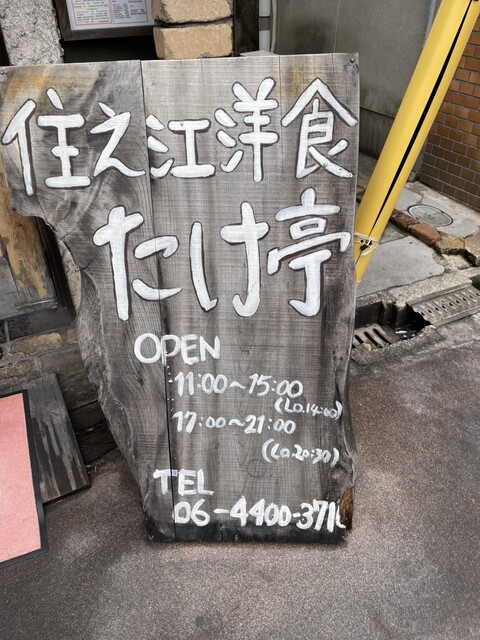 住之江洋食
たけ亭
OPEN
11:00~15:00
(L.O.14:00)
17:00~21:00
(L.O.20:30)
TEL